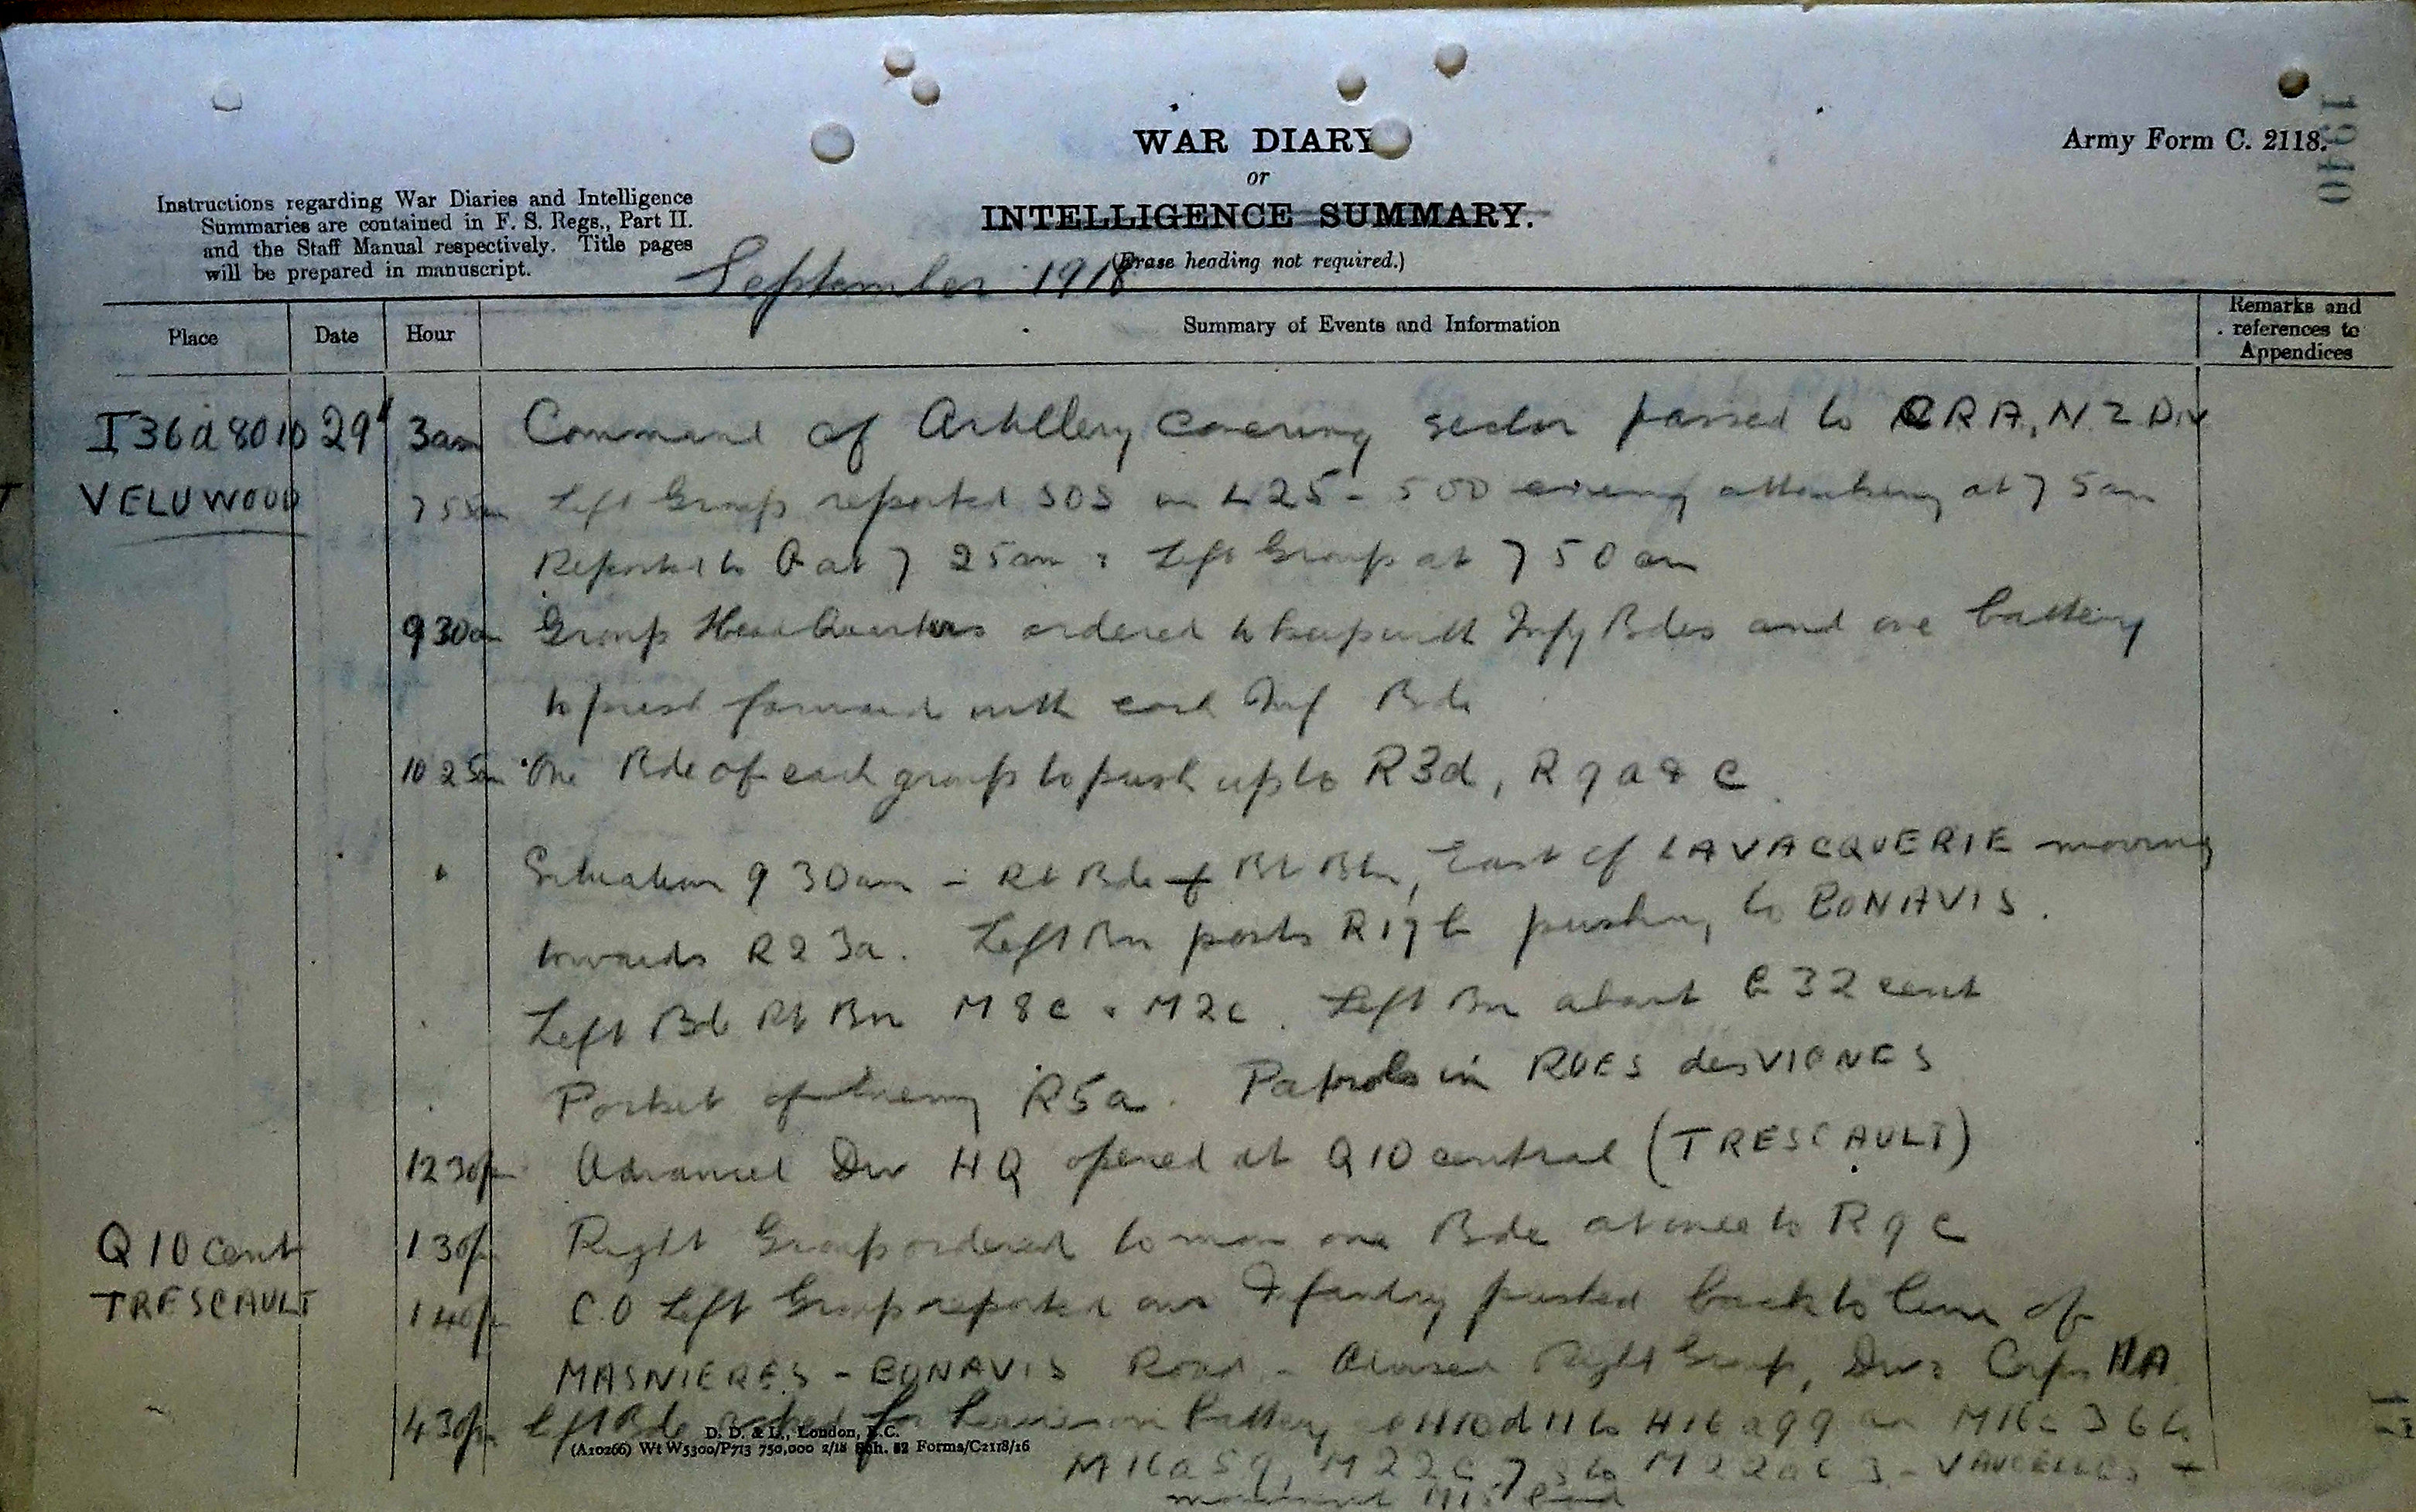 WAR DIARY
or
INTELLIGENCE SUMMARY.
(Erase heading not required.)
Army Form C. 2118.
1940
Instructions regarding War Diaries and Intelligence
Summaries are contained in F. S. Regs., Part II.
and the Staff Manual respectively. Title pages
will be prepared in manuscript.
September 1918
Place Date Hour Summary of Events and Information Remarks and references to Appendices
I36d 80 10 29th 3am Command of Artillery covering sector passed to CRA, N.Z Div
VELU WOOD 7 55am Left Group reported SOS on L25 - 500 enemy attacking at 7 5am
Reported to Q at 7 25am & Left Group at 7 50 am
9 30am Group HeadQuarters ordered to keep with Infy Bdes and one battery
to push forward with each Inf Bde
10 25am One Bde of each group to push up to R3d, R9a & c
Situation 9 30am - Rt Bde Rt Btn, East of LAVACQUERIE moving
towards R23a. Left Bn posts R17b pushing to BONAVIS.
Left Bde Rt Bn M8c & M2c. Left Bn about G32 cent
Pocket of Enemy R5a. Patrols in RUES des VIGNES
12 30pm Advanced Div HQ opened at Q10 central (TRESCAULT)
Q10 cent 1 30pm Right Group ordered to move one Bde at once to R9c
TRESCAULT 1 40pm C.O Left Group reported our Infantry pushed back to line of
MASNIERES - BONAVIS Road - Right Group, Div & Corps HA
4 30pm Left Bde asked for heavies on Battery H10d 11 to H16a99 M16c 36 to
M16a59, M22c 7 3 to M22a - VAUCELLES +
D. D. & L., London, E.C.
(A10266) Wt W5300/P713 750,000 2/18 Sch. 52 Forms/C2118/16